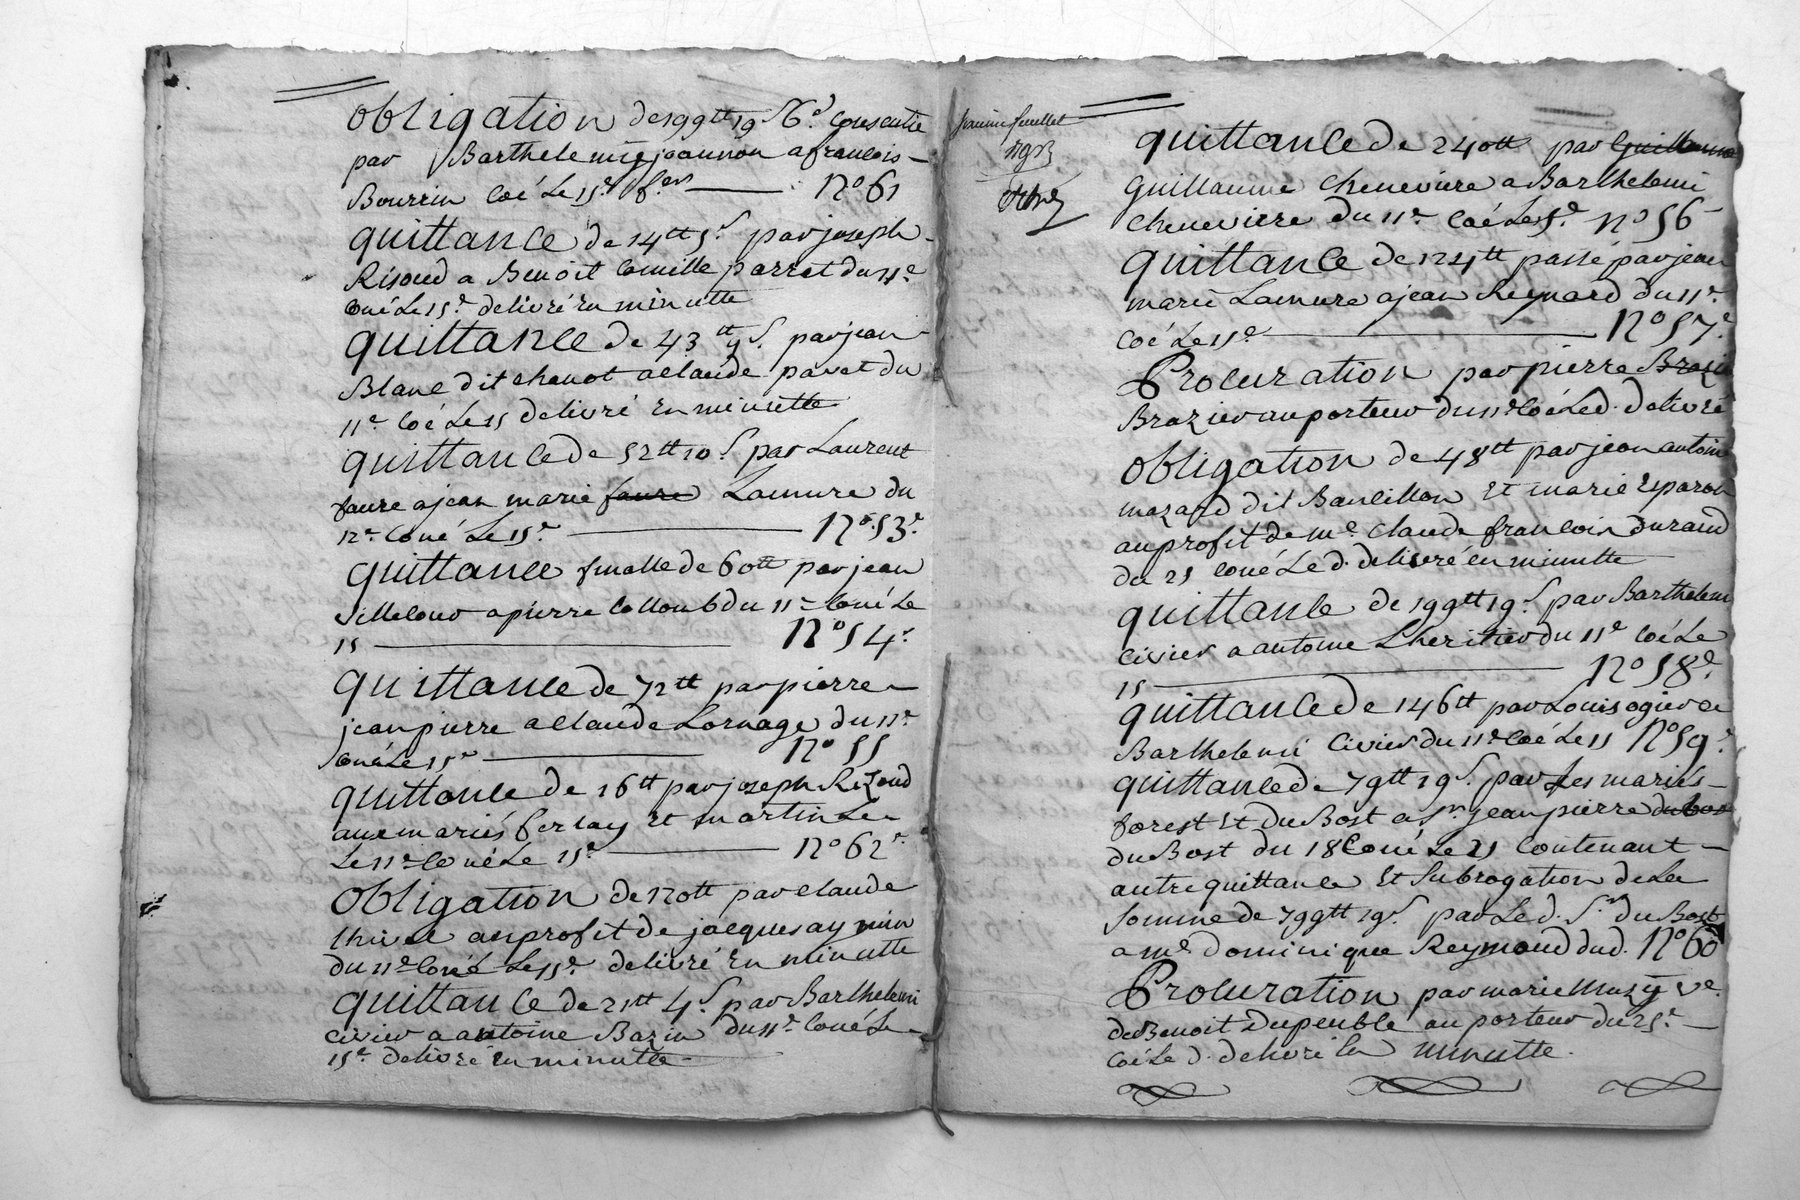 obligation de 199tt 19s 6d consentie
par Barthelemy jeannon a francois
Bourrin coé Le 15e N° 61
quittance de 14tt 5s par joseph
Risoud a Benoit Comille parrat du 11e
coné Le 15e delivré En minutte
quittance de 43tt s. par jean
Blanc dit chanot a claude pavet du
11e coé Le 15 delivré En minutte
quittance de 52tt 10s par Laurent
faure a jean marie faure Lamure du
12e Coné Le 15e N° 53e
quittance finalle de 60tt par jean
a pierre Collomb du 11e Coné Le
15 N° 54e
quittance de 72tt par pierre
jean pierre a claude Lornage du 11e
Coné Le 15e N° 55
quittance de 16tt par joseph Rezoud
aux mariés ferlay Et martin Le
Le 11e Coné Le 15e N° 62e
obligation de 120tt par claude
au profit de jacques aymin
du 11e Coné Le 15e delivré En minutte
quittance de 21tt 4s par Barthelemi
civier a antoine Bazin du 11e Coné Le
15e delivré En minutte
feuillet
quittance de 240tt par Guillaume
Guillaume cheneviere a Barthelemi
chenevierre du 11e Coé Le 15e N° 56
quittance de 124tt passé par jean
marie Lamure a jean Reynard du 11e
Coé Le 15e N° 57e
Procuration par pierre Brazie
Brazier au porteur du 11e Coé Le d. delivré
obligation de 48tt par jean antoine
mazard dit Baucillon Et marie Esparon
au profit de me. Claude francois durand
du 21 Coné Le d. delivré en minutte
quittance de 199tt 19s par Barthelemi
civier a antoine Lheritier du 11e Coé Le
15 N° 58e
quittance de 146tt par Louis ogier a
Barthelemi Civier du 11e Coé Le 15 N° 59e
quittance de 79tt 19s par Les mariés
forest Et du Bost a sr. jean pierre du bos
du Bost du 18 Coné Le 21 Contenant
autre quittance Et subrogation de La
somme de 799tt 19s par Le d. Sr. du Bost
a me. dominique Reymond dud. N° 60
Procuration par marie Muzy ve.
de Benoit Dupeuble au porteur du 25e
Coé Le d. delivré En minutte.